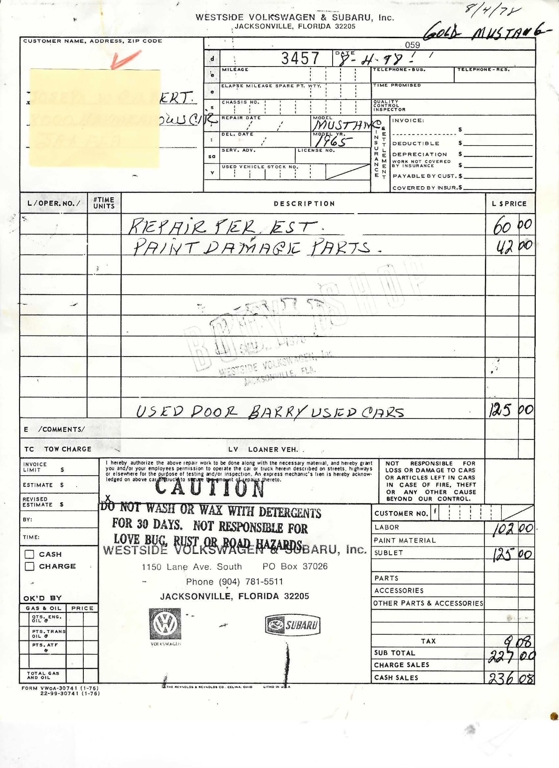 8/4/78
WESTSIDE VOLKSWAGEN & SUBARU, Inc.
JACKSONVILLE, FLORIDA 32205
GOLD MUSTANG
CUSTOMER NAME, ADDRESS, ZIP CODE
059
3457
DATE
8-4-98
MILEAGE
TELEPHONE-BUS.
TELEPHONE-RES.
ELAPSE MILEAGE SPARE PT. WTY.
TIME PROMISED
CHASSIS NO.
QUALITY CONTROL INSPECTOR
ERT.
REPAIR DATE
MODEL
MUSTANG
INSURANCE SETTLEMENT
INVOICE: $
DEL. DATE
MODEL YR.
1965
DEDUCTIBLE $
SERV. ADV.
LICENSE NO.
DEPRECIATION $
WORK NOT COVERED BY INSURANCE $
USED VEHICLE STOCK NO.
PAYABLE BY CUST. $
COVERED BY INSUR. $
L/OPER. NO./
#TIME UNITS
DESCRIPTION
L S PRICE
REPAIR PER EST. 60 00
PAINT DAMAGE PARTS. 42 00
BODY SHOP
WESTSIDE VOLKSWAGEN, Inc
JACKSONVILLE, FLA.
USED DOOR BARRY USED CARS 125 00
E /COMMENTS/
TC TOW CHARGE
LV LOANER VEH.
INVOICE LIMIT $
ESTIMATE $
REVISED ESTIMATE $
BY:
TIME:
CASH
CHARGE
OK'D BY
GAS & OIL PRICE
QTS. ENG. OIL #
PTS. TRANS OIL #
PTS. ATF #
TOTAL GAS AND OIL
I hereby authorize the above repair work to be done along with the necessary material, and hereby grant
you and/or your employees permission to operate the car or truck herein described on streets, highways
or elsewhere for the purpose of testing and/or inspection. An express mechanic's lien is hereby acknow-
ledged on above car
CAUTION
DO NOT WASH OR WAX WITH DETERGENTS
FOR 30 DAYS. NOT RESPONSIBLE FOR
LOVE BUG, RUST OR ROAD HAZARDS
WESTSIDE VOLKSWAGEN & SUBARU, Inc.
1150 Lane Ave. South PO Box 37026
Phone (904) 781-5511
JACKSONVILLE, FLORIDA 32205
VOLKSWAGEN
SUBARU
NOT RESPONSIBLE FOR
LOSS OR DAMAGE TO CARS
OR ARTICLES LEFT IN CARS
IN CASE OF FIRE, THEFT
OR ANY OTHER CAUSE
BEYOND OUR CONTROL.
CUSTOMER NO.
LABOR 102 00
PAINT MATERIAL
SUBLET 125 00
PARTS
ACCESSORIES
OTHER PARTS & ACCESSORIES
TAX 9 08
SUB TOTAL 227 00
CHARGE SALES
CASH SALES 236 08
FORM VWOA-30741 (1-76)
22-99-30741 (1-76)
THE REYNOLDS & REYNOLDS CO., CELINA, OHIO LITHO IN U.S.A.